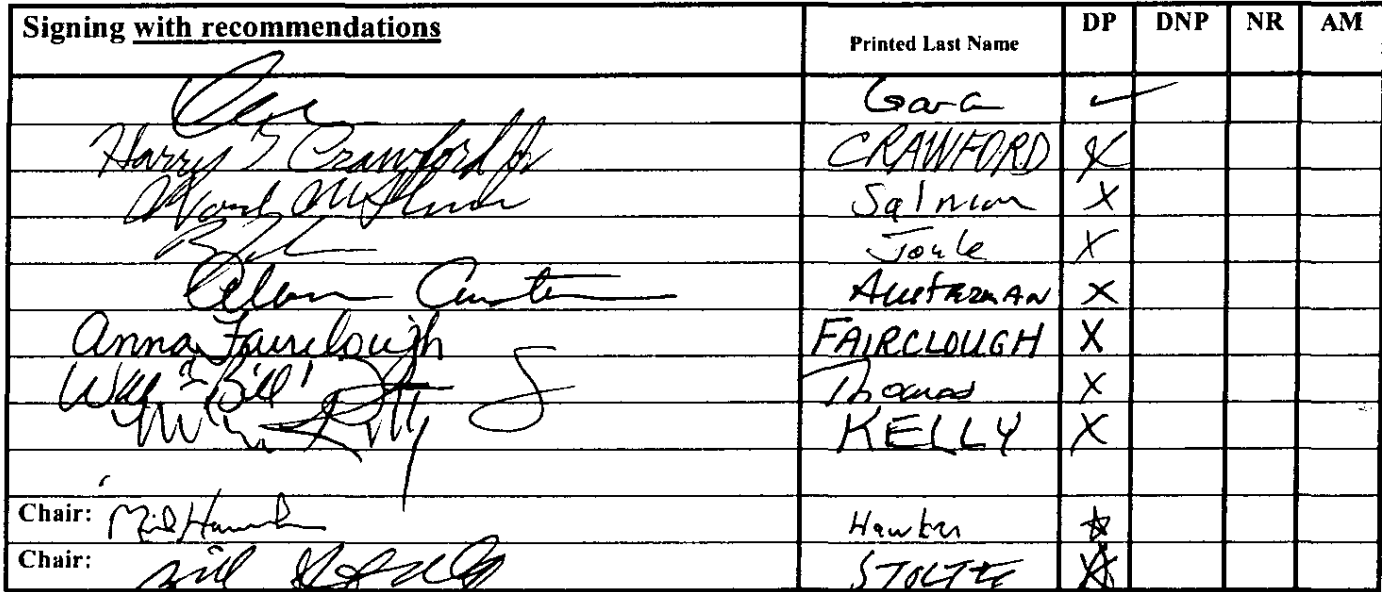 Signing with recommendations Printed Last Name DP DNP NR AM
Gara ✓
Harry T Crawford Jr CRAWFORD X
Salmon X
Joule X
Alan Austerman AUSTERMAN X
Anna Fairclough FAIRCLOUGH X
"Bill" Thomas X
Mike Kelly KELLY X
Chair: Mike Hawker Hawker
Chair: Bill Stoltze STOLTZE